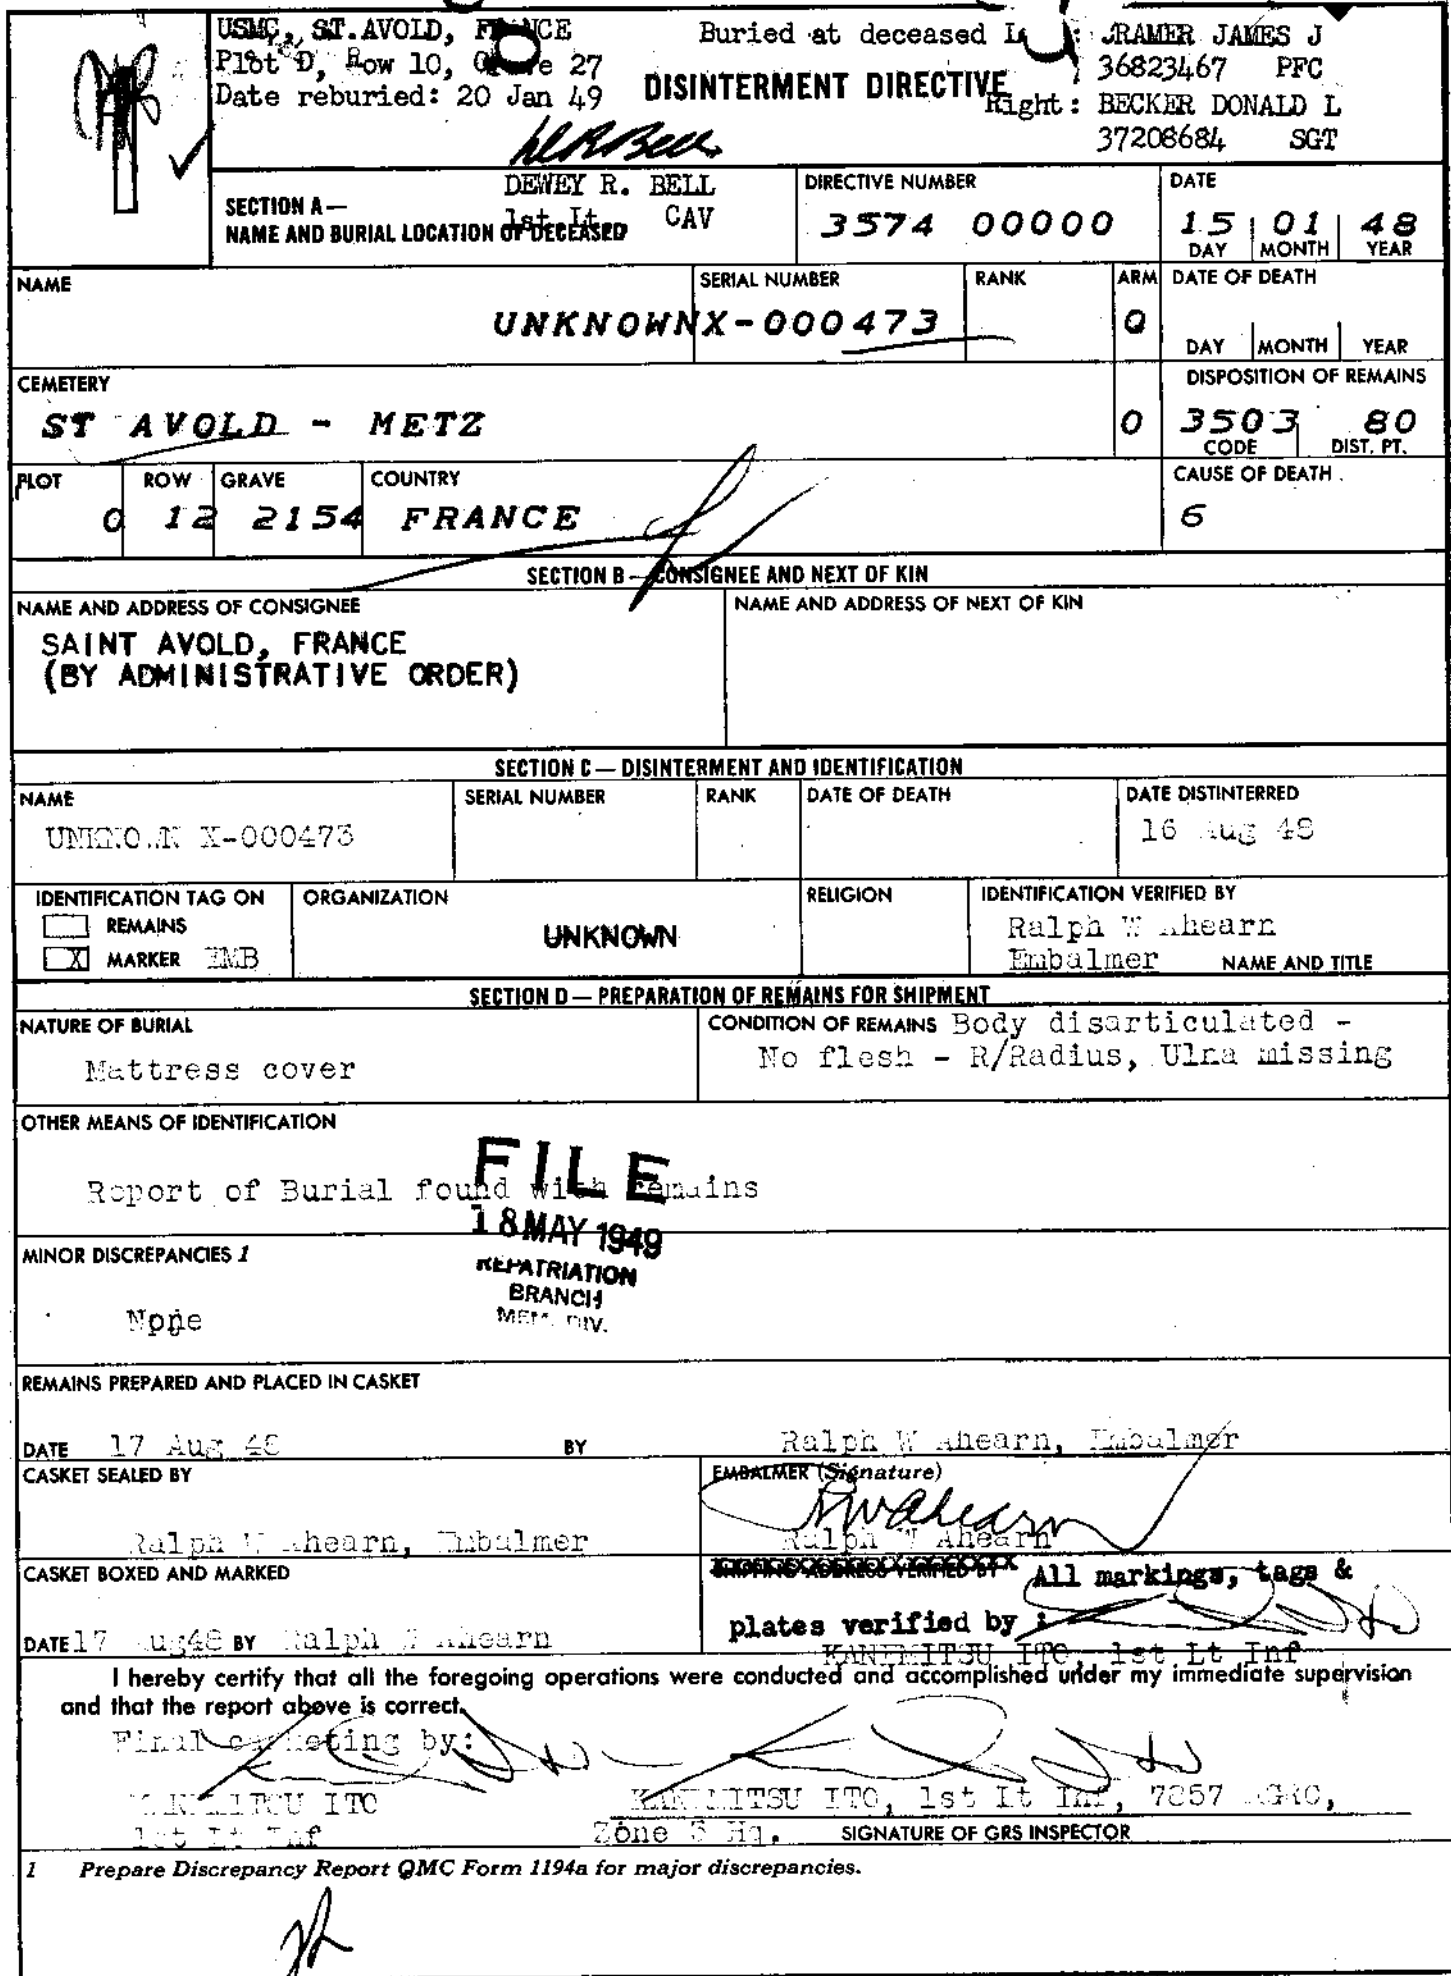 USMC, ST.AVOLD, FRANCE
Plot D, Row 10, Grave 27
Date reburied: 20 Jan 49
Buried at deceased L : CRAMER JAMES J
36823467 PFC
DISINTERMENT DIRECTIVE
Right: BECKER DONALD L
37208684 SGT
DEWEY R. BELL
1st Lt. CAV
SECTION A—
NAME AND BURIAL LOCATION OF DECEASED
DIRECTIVE NUMBER
3574 00000
DATE
15 01 48
DAY MONTH YEAR
NAME
UNKNOWN
SERIAL NUMBER
X-000473
RANK
ARM
Q
DATE OF DEATH
DAY MONTH YEAR
CEMETERY
ST AVOLD - METZ
0
DISPOSITION OF REMAINS
3503 80
CODE DIST. PT.
PLOT ROW GRAVE COUNTRY
0 12 2154 FRANCE
CAUSE OF DEATH
6
SECTION B — CONSIGNEE AND NEXT OF KIN
NAME AND ADDRESS OF CONSIGNEE
SAINT AVOLD, FRANCE
(BY ADMINISTRATIVE ORDER)
NAME AND ADDRESS OF NEXT OF KIN
SECTION C — DISINTERMENT AND IDENTIFICATION
NAME
UNKNOWN X-000473
SERIAL NUMBER
RANK
DATE OF DEATH
DATE DISTINTERRED
16 Aug 48
IDENTIFICATION TAG ON
REMAINS
X MARKER EMB
ORGANIZATION
UNKNOWN
RELIGION
IDENTIFICATION VERIFIED BY
Ralph W Ahearn
Embalmer NAME AND TITLE
SECTION D — PREPARATION OF REMAINS FOR SHIPMENT
NATURE OF BURIAL
Mattress cover
CONDITION OF REMAINS Body disarticulated -
No flesh - R/Radius, Ulna missing
OTHER MEANS OF IDENTIFICATION
Report of Burial found with remains
FILE
18 MAY 1949
REPATRIATION
BRANCH
MEM. DIV.
MINOR DISCREPANCIES 1
None
REMAINS PREPARED AND PLACED IN CASKET
DATE 17 Aug 48 BY Ralph W Ahearn, Embalmer
CASKET SEALED BY
Ralph W Ahearn, Embalmer
EMBALMER (Signature)
RWAhearn
Ralph W Ahearn
CASKET BOXED AND MARKED
DATE 17 Aug48 BY Ralph W Ahearn
SHIPPING ADDRESS VERIFIED BY All markings, tags &
plates verified by :
KANEMITSU ITO, 1st Lt Inf
I hereby certify that all the foregoing operations were conducted and accomplished under my immediate supervision
and that the report above is correct.
Final casketing by:
KANEMITSU ITO
1st Lt Inf
KANEMITSU ITO, 1st Lt Inf, 7857 AGRC,
Zone 3 Hq. SIGNATURE OF GRS INSPECTOR
1 Prepare Discrepancy Report QMC Form 1194a for major discrepancies.